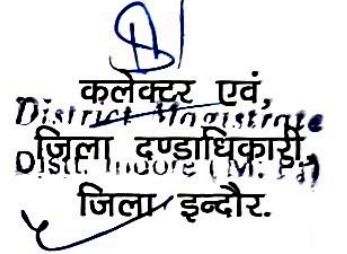 कलेक्टर एवं,
District Magistrate
जिला दण्डाधिकारी,
Distt. Indore (M. P.)
जिला इन्दौर.